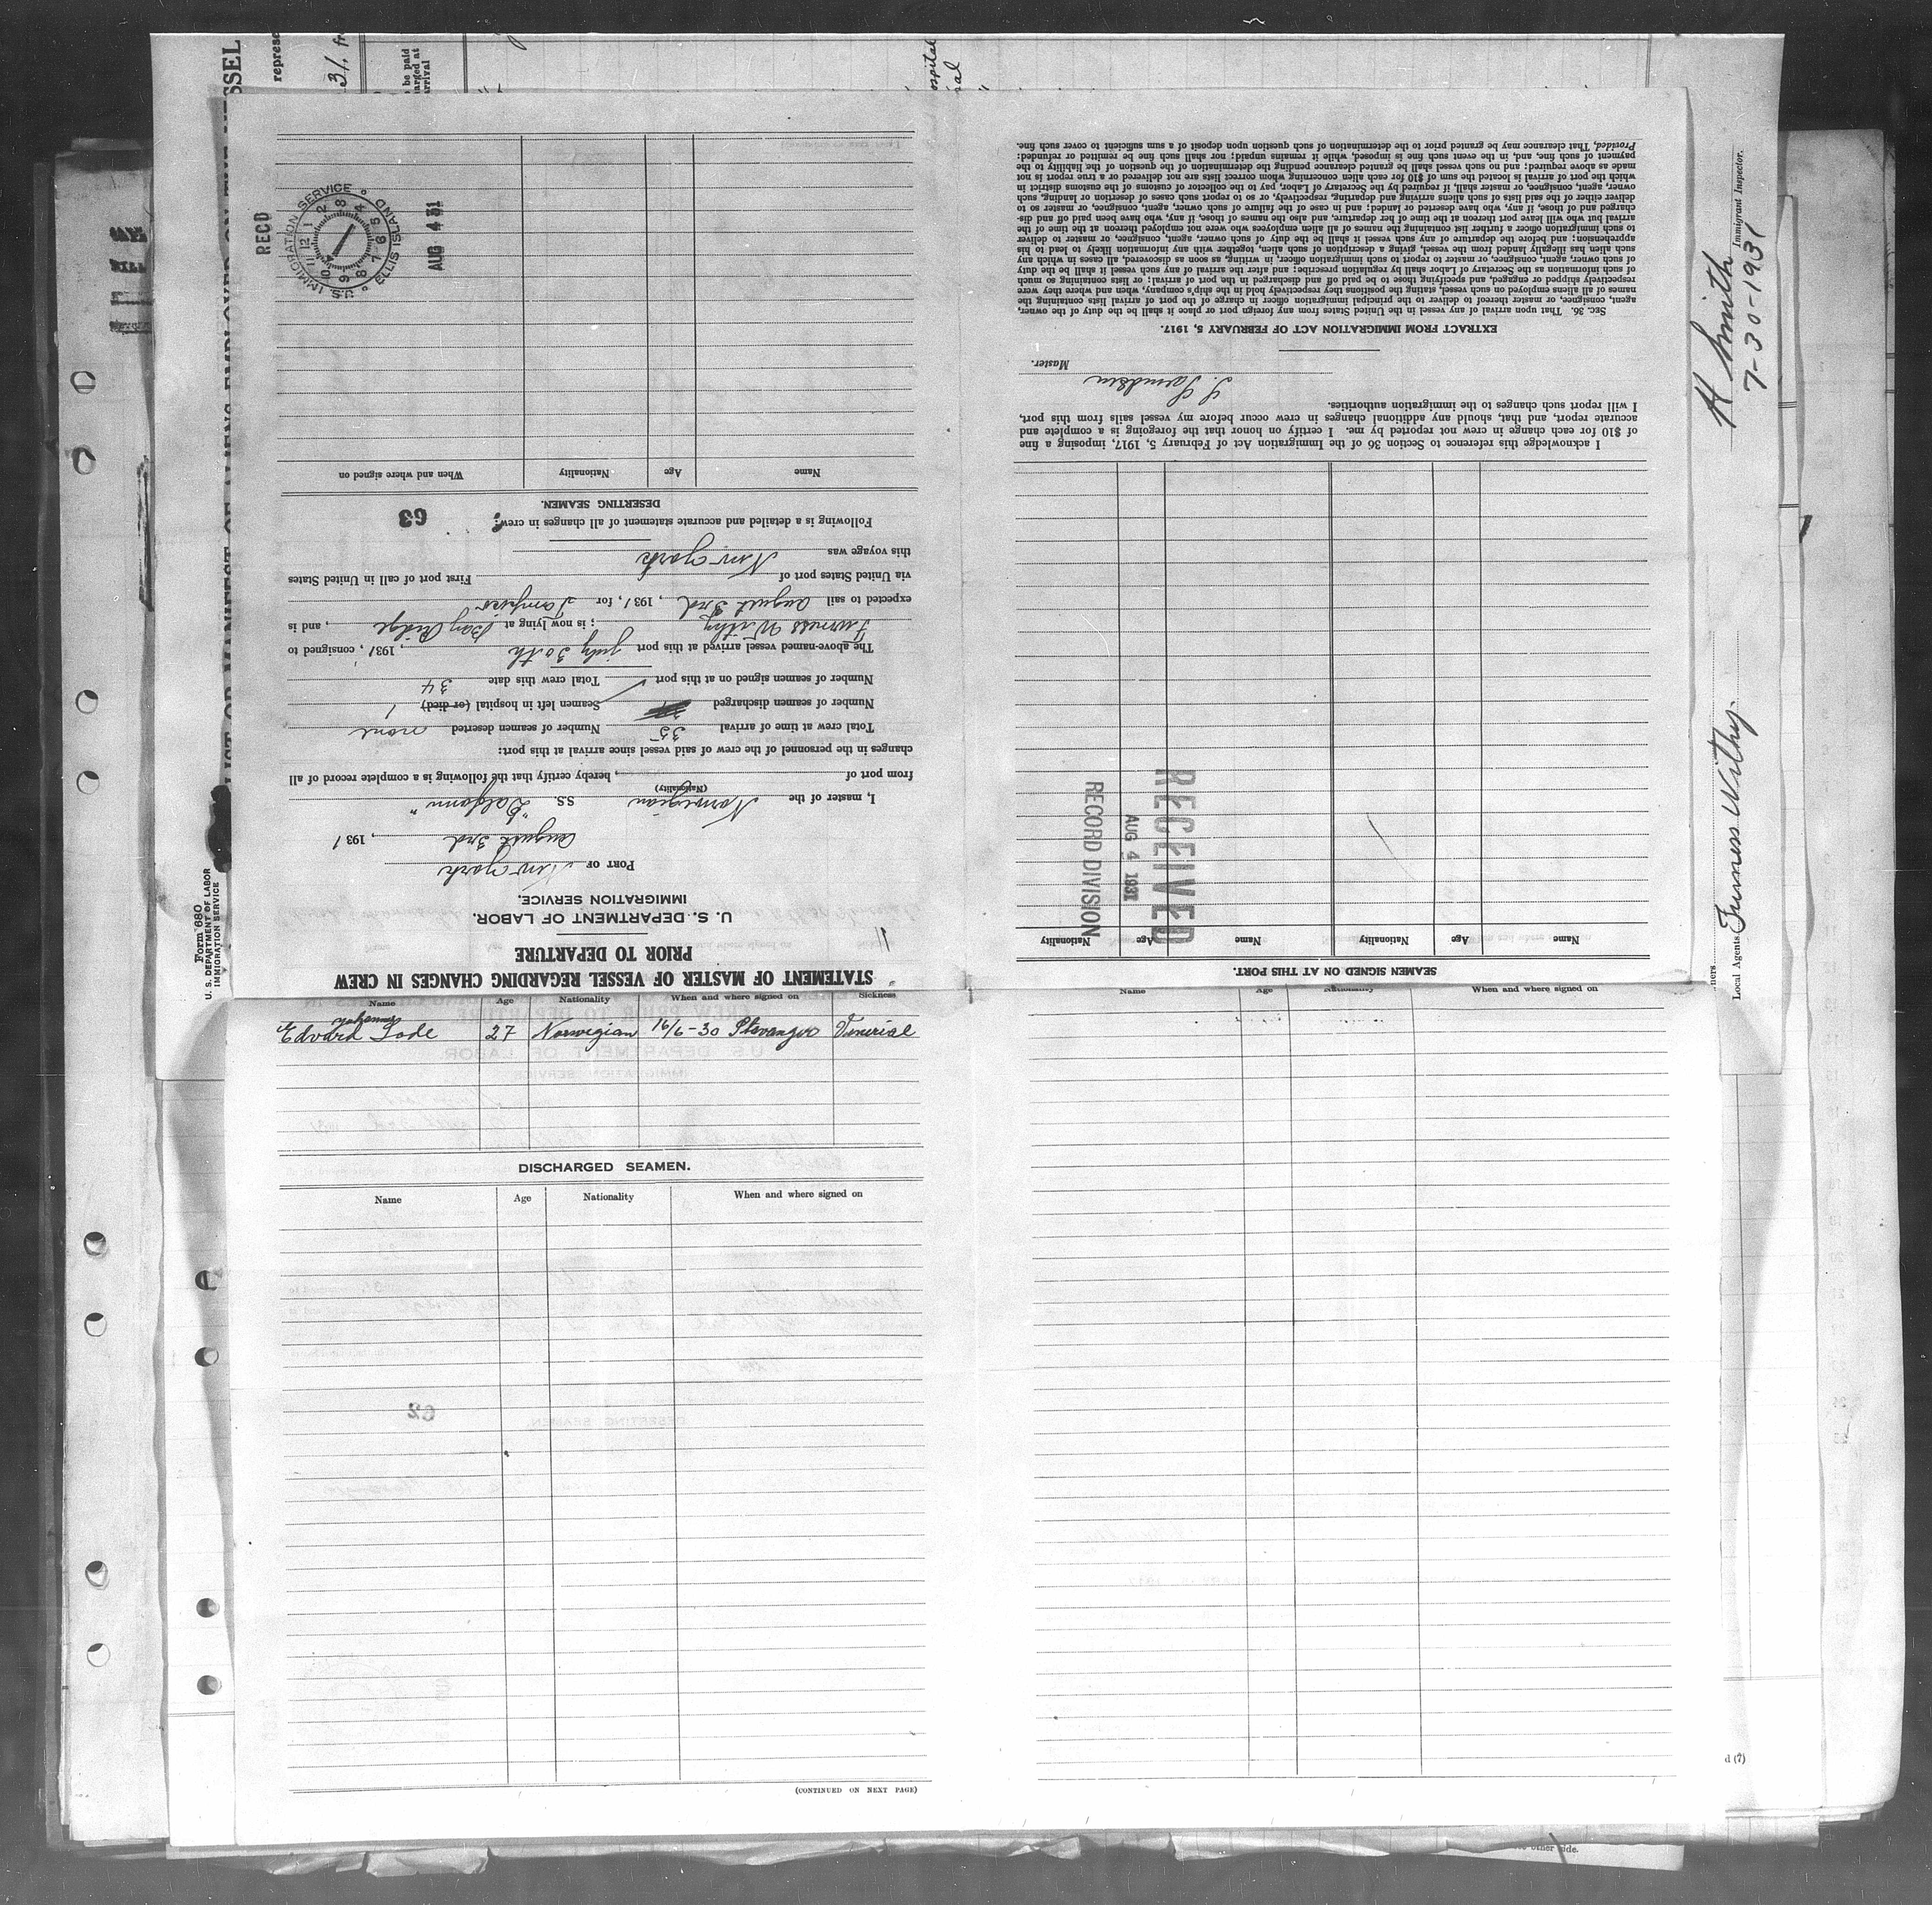 STATEMENT OF MASTER OF VESSEL REGARDING CHANGES IN CREW
PRIOR TO DEPARTURE
U. S. DEPARTMENT OF LABOR.
IMMIGRATION SERVICE.
PORT OF New York
august 3rd, 1931
I, master of the Norwegian SS. "Dalfonn"
(Nationality)
from port of , hereby certify that the following is a complete record of all
changes in the personnel of the crew of said vessel since arrival at this port:
Total crew at time of arrival 35 Number of seamen deserted none
Number of seamen discharged Seamen left in hospital (or died) 1
Number of seamen signed on at this port Total crew this date 34
The above-named vessel arrived at this port july 30th, 1931, consigned to
Furness Withy; is now lying at Bay Ridge, and is
expected to sail august 3rd, 1931, for Tampico
via United States port of First port of call in United States
this voyage was New York
Following is a detailed and accurate statement of all changes in crew:
63
DESERTING SEAMEN.
Name Age Nationality When and where signed on
REC'D
U.S. IMMIGRATION SERVICE
ELLIS ISLAND
AUG 4 31
Name Age Nationality When and where signed on Sickness
Johannes
Edvard Lode 27 Norwegian 16/6-30 Stavanger Venerial
DISCHARGED SEAMEN.
Name Age Nationality When and where signed on
(CONTINUED ON NEXT PAGE)
Name Age Nationality When and where signed on
SEAMEN SIGNED ON AT THIS PORT.
Name Age Nationality Name Age Nationality
RECEIVED
AUG 4 1931
RECORD DIVISION
I acknowledge this reference to Section 36 of the Immigration Act of February 5, 1917, imposing a fine
of $10 for each change in crew not reported by me. I certify on honor that the foregoing is a complete and
accurate report, and that, should any additional changes in crew occur before my vessel sails from this port,
I will report such changes to the immigration authorities.
Master.
EXTRACT FROM IMMIGRATION ACT OF FEBRUARY 5, 1917.
SEC. 36. That upon arrival of any vessel in the United States from any foreign port or place it shall be the duty of the owner,
agent, consignee, or master thereof to deliver to the principal immigration officer in charge of the port of arrival lists containing the
names of all aliens employed on such vessel, stating the positions they respectively hold in the ship's company, when and where they were
respectively shipped or engaged, and specifying those to be paid off and discharged in the port of arrival; or lists containing so much
of such information as the Secretary of Labor shall by regulation prescribe; and after the arrival of any such vessel it shall be the duty
of such owner, agent, consignee, or master to report to such immigration officer, in writing, as soon as discovered, all cases in which any
such alien has illegally landed from the vessel, giving a description of such alien, together with any information likely to lead to his
apprehension; and before the departure of any such vessel it shall be the duty of such owner, agent, consignee, or master to deliver
to such immigration officer a further list containing the names of all alien employees who were not employed thereon at the time of the
arrival but who will leave port thereon at the time of her departure, and also the names of those, if any, who have been paid off and dis-
charged and of those, if any, who have deserted or landed; and in case of the failure of such owner, agent, consignee, or master so to
deliver either of the said lists of such aliens arriving and departing, respectively, or so to report such cases of desertion or landing, such
owner, agent, consignee, or master shall, if required by the Secretary of Labor, pay to the collector of customs of the customs district in
which the port of arrival is located the sum of $10 for each alien concerning whom correct lists are not delivered or a true report is not
made as above required; and no such vessel shall be granted clearance pending the determination of the question of the liability to the
payment of such fine, and, in the event such fine is imposed, while it remains unpaid; nor shall such fine be remitted or refunded:
Provided, That clearance may be granted prior to the determination of such question upon deposit of a sum sufficient to cover such fine.
Form 680
U. S. DEPARTMENT OF LABOR
IMMIGRATION SERVICE
H Smith
Immigrant Inspector.
7-30-1931
Local Agents Furness Withy.